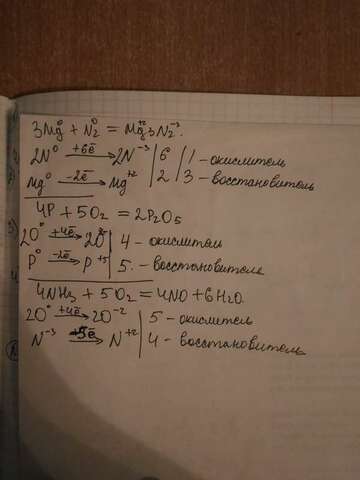 3Mg⁰ + N₂⁰ = Mg⁺²₃N₂⁻³.
2N⁰ +6ē→ 2N⁻³ | 6 | 1 - окислитель
Mg⁰ -2ē→ Mg⁺² | 2 | 3 - восстановитель
4P + 5O₂ = 2P₂O₅
2O⁰ +4ē→ 2O⁻² | 4 - окислитель
P⁰ -2ē→ P⁺⁵ | 5. - восстановителе
4NH₃ + 5O₂ = 4NO + 6H₂O.
2O⁰ +4ē→ 2O⁻² | 5 - окислитель
N⁻³ -5ē→ N⁺² | 4 - восстановитель